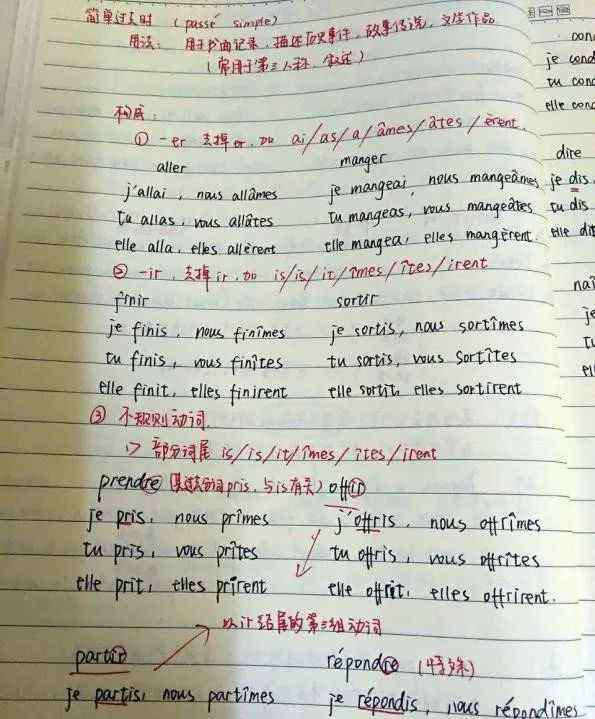 简单过去时 (passé simple)
用法: 用于书面记录, 描述历史事件, 故事传说, 文学作品
(常用于第三人称, 叙述)
构成:
① -er 去掉er, 加 ai/as/a/âmes/âtes/èrent.
aller manger
j'allai, nous allâmes je mangeai, nous mangeâmes
tu allas, vous allâtes tu mangeas, vous mangeâtes
elle alla, elles allèrent elle mangea, elles mangèrent.
② -ir, 去掉ir, 加 is/is/it/îmes/îtes/irent
finir sortir
je finis, nous finîmes je sortis, nous sortîmes
tu finis, vous finîtes tu sortis, vous sortîtes
elle finit, elles finirent elle sortit, elles sortirent
③ 不规则动词.
1> 部分词尾 is/is/it/îmes/îtes/irent
prendre (其过去分词pris, 与is有关) offrir
je pris, nous prîmes j'offris, nous offrîmes
tu pris, vous prîtes tu offris, vous offrîtes
elle prit, elles prirent elle offrit, elles offrirent.
以ir结尾的第三组动词
partir répondre (特殊)
je partis, nous partîmes je répondis, nous répondîmes
je cond
tu cond
elle cond
dire
je dis
tu dis
elle dit
naî
je
tu